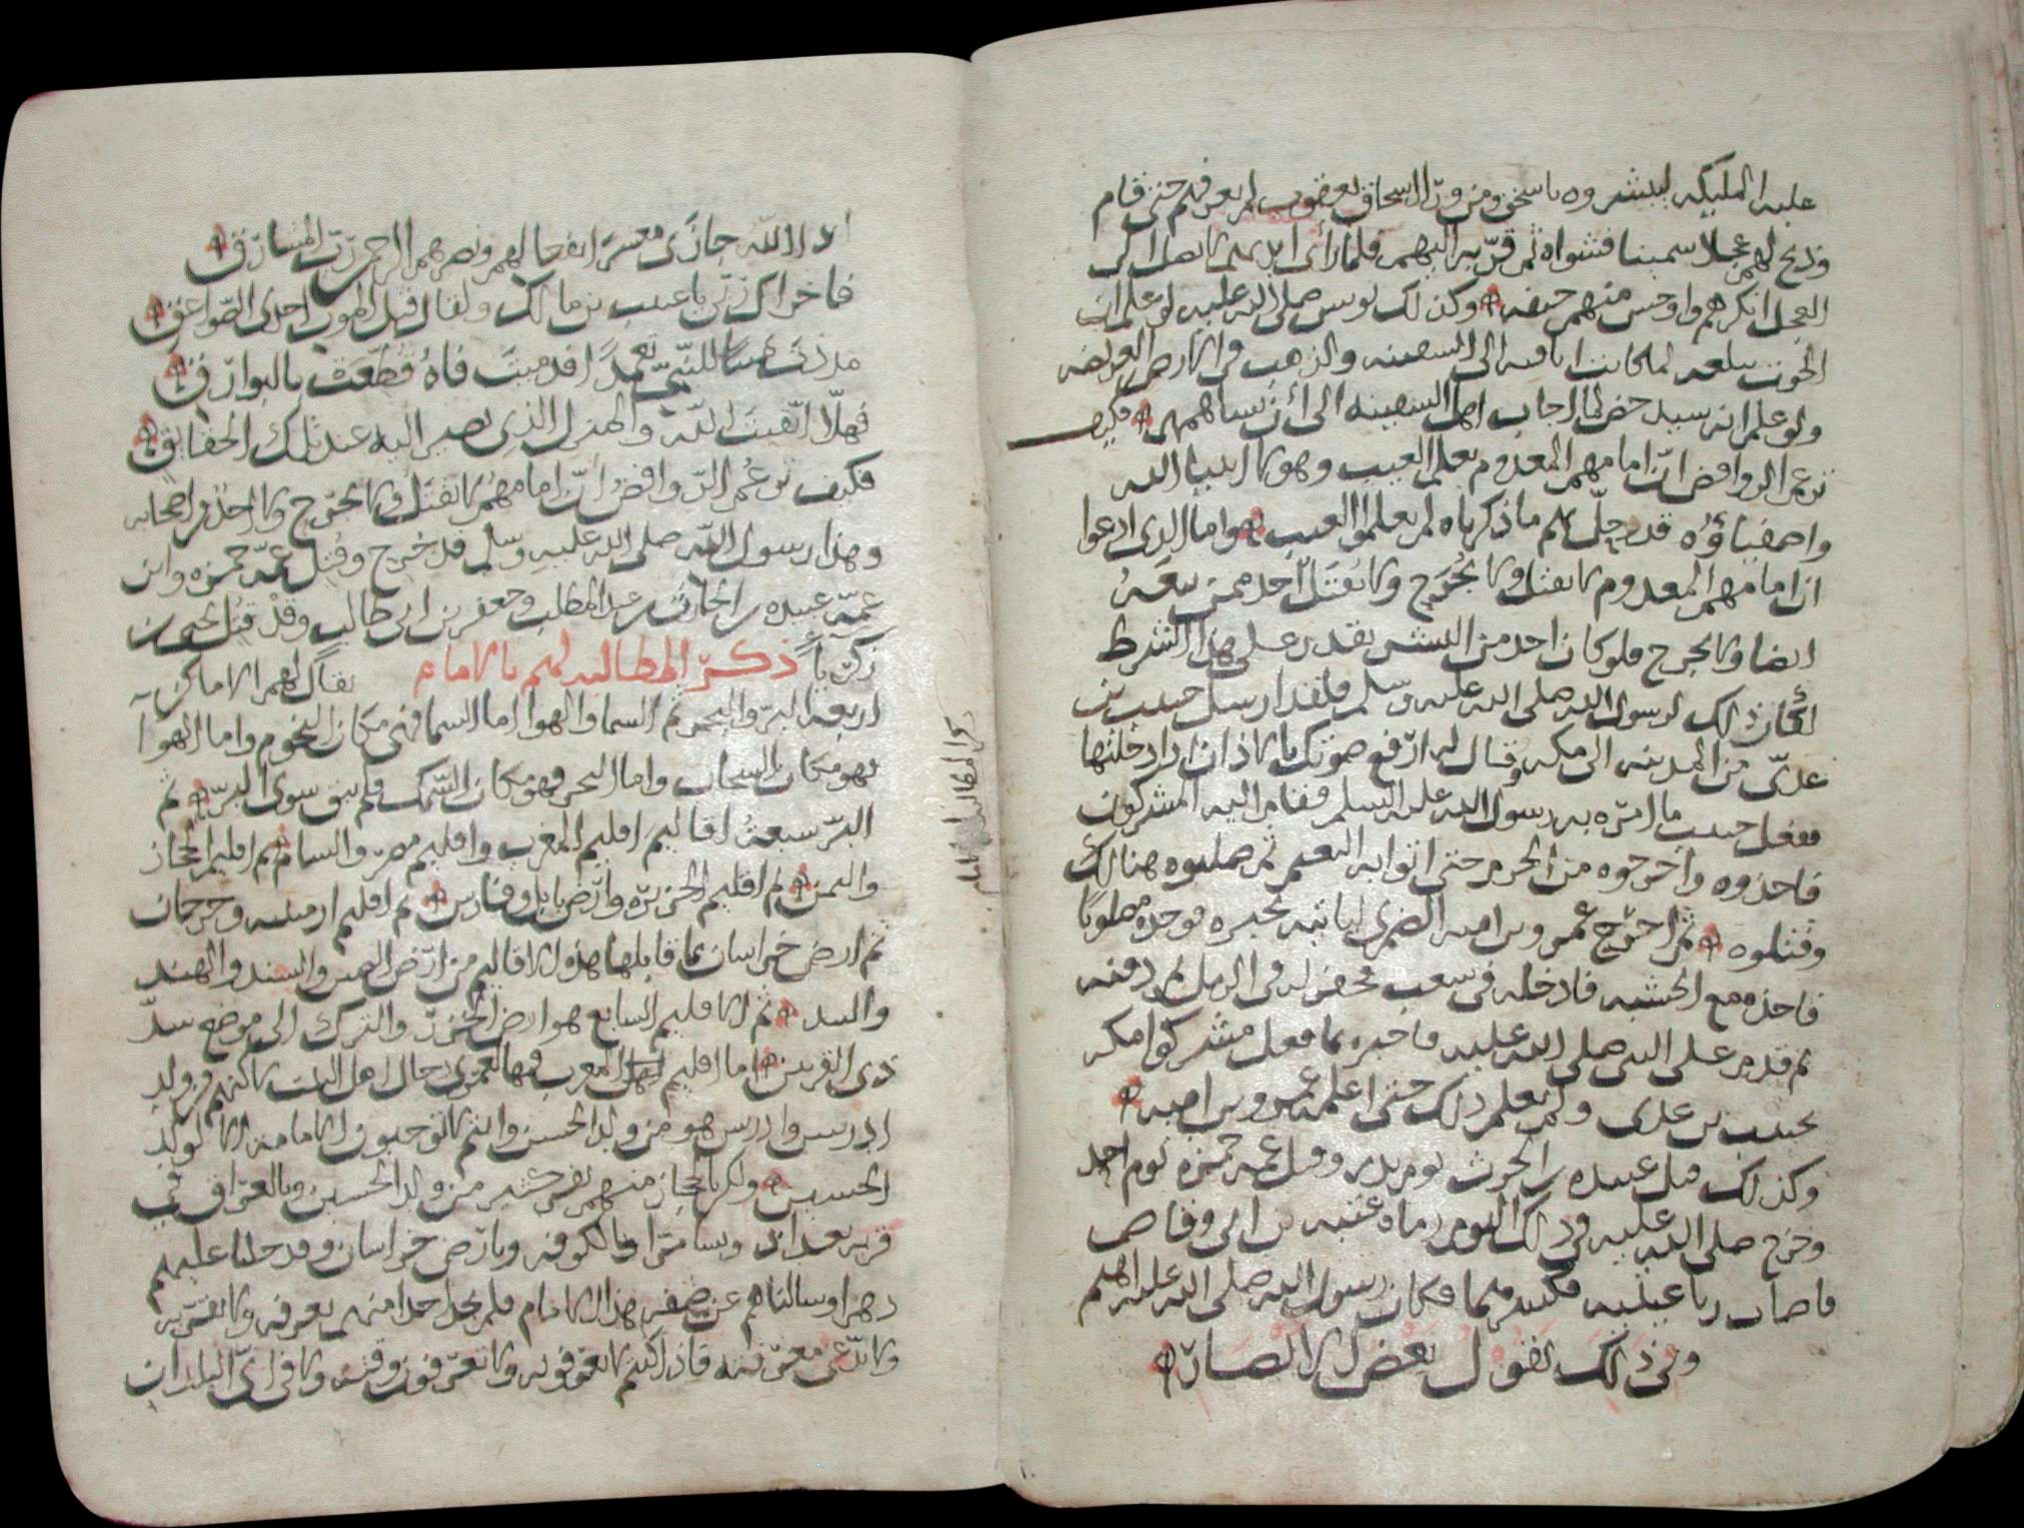 عليه الملىكه لىبشروه باسحق ومن ورا اسحاق يعقوب لم يعرفهم حتى قام
وذبح لهم عجلا سمينا فشواه ثم قرّبه اليهم فلما رأى ايديهم لا تصل الى
العجل انكرهم واوجس منهم خيفه وكذلك يونس صلى الله عليه لو علم ان
الحوت يبلعه لما كانت اىاقىه الى السفينه والذهب في الارض العريضه
ولو علم انه سيدحض لما اجاب اهل السفينه الى أن يساهمهم فكيف
تزعم الروافض انّ امامهم المعدوم يعلم الغيب وهولا انبيا الله
واصفياؤه قد جلّ لهم ما ذكرناه لم يعلموا الغيب واما الذي ادعوا
ان امامهم المعدوم لا يقتل ولا يُجرَح ولا يُقتَل احد ممن تبعهُ
ايضا ولا يجرح فلو كان احد من البشر يقدر على هذا الشرط
لكان ذلك لرسول الله صلى الله عليه وسلم فلقد ارسل حبيب بن
عديّ من المدينه الى مكه وقال له ارفع صوتك بالاذان اذا دخلتها
ففعل حبيب ما امره به رسول الله عليه السلم فقام اليه المشركون
فاخذوه واخرجوه من الحرم حتى اتوا به النعيم ثم صلبوه هنالك
وقتلوه ثم اخرج عمرو بن اميه الضمري لياتيه بخبره فوجده مصلوبًا
فاخذه مع الخشبه فادخله في شعب فحفر له في الرمل ثم دفنه
ثم قدم على النبى صلى الله عليه فاخبره بما فعل مشركوا مكه
بحبيب بن عدى ولم يعلم ذلك حتى اعلمه عمرو بن اميه
وكذلك قتل عبيده بن الحرث يوم بدر وقتل عمه حمزه يوم احد
وخرج صلى الله عليه في ذلك اليوم رماه عتبه بن ابى وقاص
فاصاب رباعيتيه فكسرهما فكان رسول الله صلى الله عليه اهتم
وفى ذلك يقول بعض الانصار
اذ الله جازى معشرا بفعالهم ونصرهم الرحمن ربّ المشارق
فاخزاك ربّى يا عتيب بن مالك ولقاك قبل الموت احدى الصواعق
مددت يمينا للنبيّ تعمّدًا فدميت فاهُ قُطّعت بالبوارق
فهلّا اتقيت الله والمنزل الذي تصير اليه عند تلك الحقايق
فكيف تزعُم الرّوافضُ انّ امامهُم لا يقتَل ولا يجرَح ولا احد من اصحابه
وهذا رسول الله صلى الله عليهِ وسلم قد خرج وقُتل عمّه حمزه وابن
عمّه عبيده بن الحارث بن عبد المطلب وجعفر بن ابى طالب وقد قتل يحيى بن
زكريا ذكر المطالبه لهم بالامام يقال لهم الاماكن
اربعه البرّ والبحر ثم السما والهوا اما السما فهي مكان النجوم واما الهوا
فهو مكان السحاب واما البحر فهو مكان السّمك فلم يبق سوى البرّ ثم
البرّ سبعة اقاليم اقليم المغرب واقليم مصر والشام ثم اقليم الحجاز
واليمن ثم اقليم الجزيره وارض بابل وفارس ثم اقليم ارمينيه وجرجان
ثم ارض خراسان بما قابلها هذه الاقاليم من ارض الصين والسند والهند
والسد ثم الاقليم السابع هو ارض الخزر والترك الى موضع سدّ
ذى القرنين اما اقليم اهل المغرب فهالعمري رجال اهل البيت لاكنهم من ولد
ادريس وادريس هو من ولد الحسن وانتم لا توجبون الامامه الا لولد
الحسين ولكن بالحجاز منهم نفر كثير من ولد الحسين وبالعراق في
قريه بغداد وبسامرا وبالكوفه وبارض خراسان وقد دخلنا عليهم
دهرا وسالناهم عن صفه هذا الامام فلم نجد احدا منهم يعرفه ولا يقر به
ولا يدّعى معرفته فاذا كنتم لا تعرفونه ولا تعرفون وقته ولا في اىّ البلدان
ذكر المطالبه بالامام